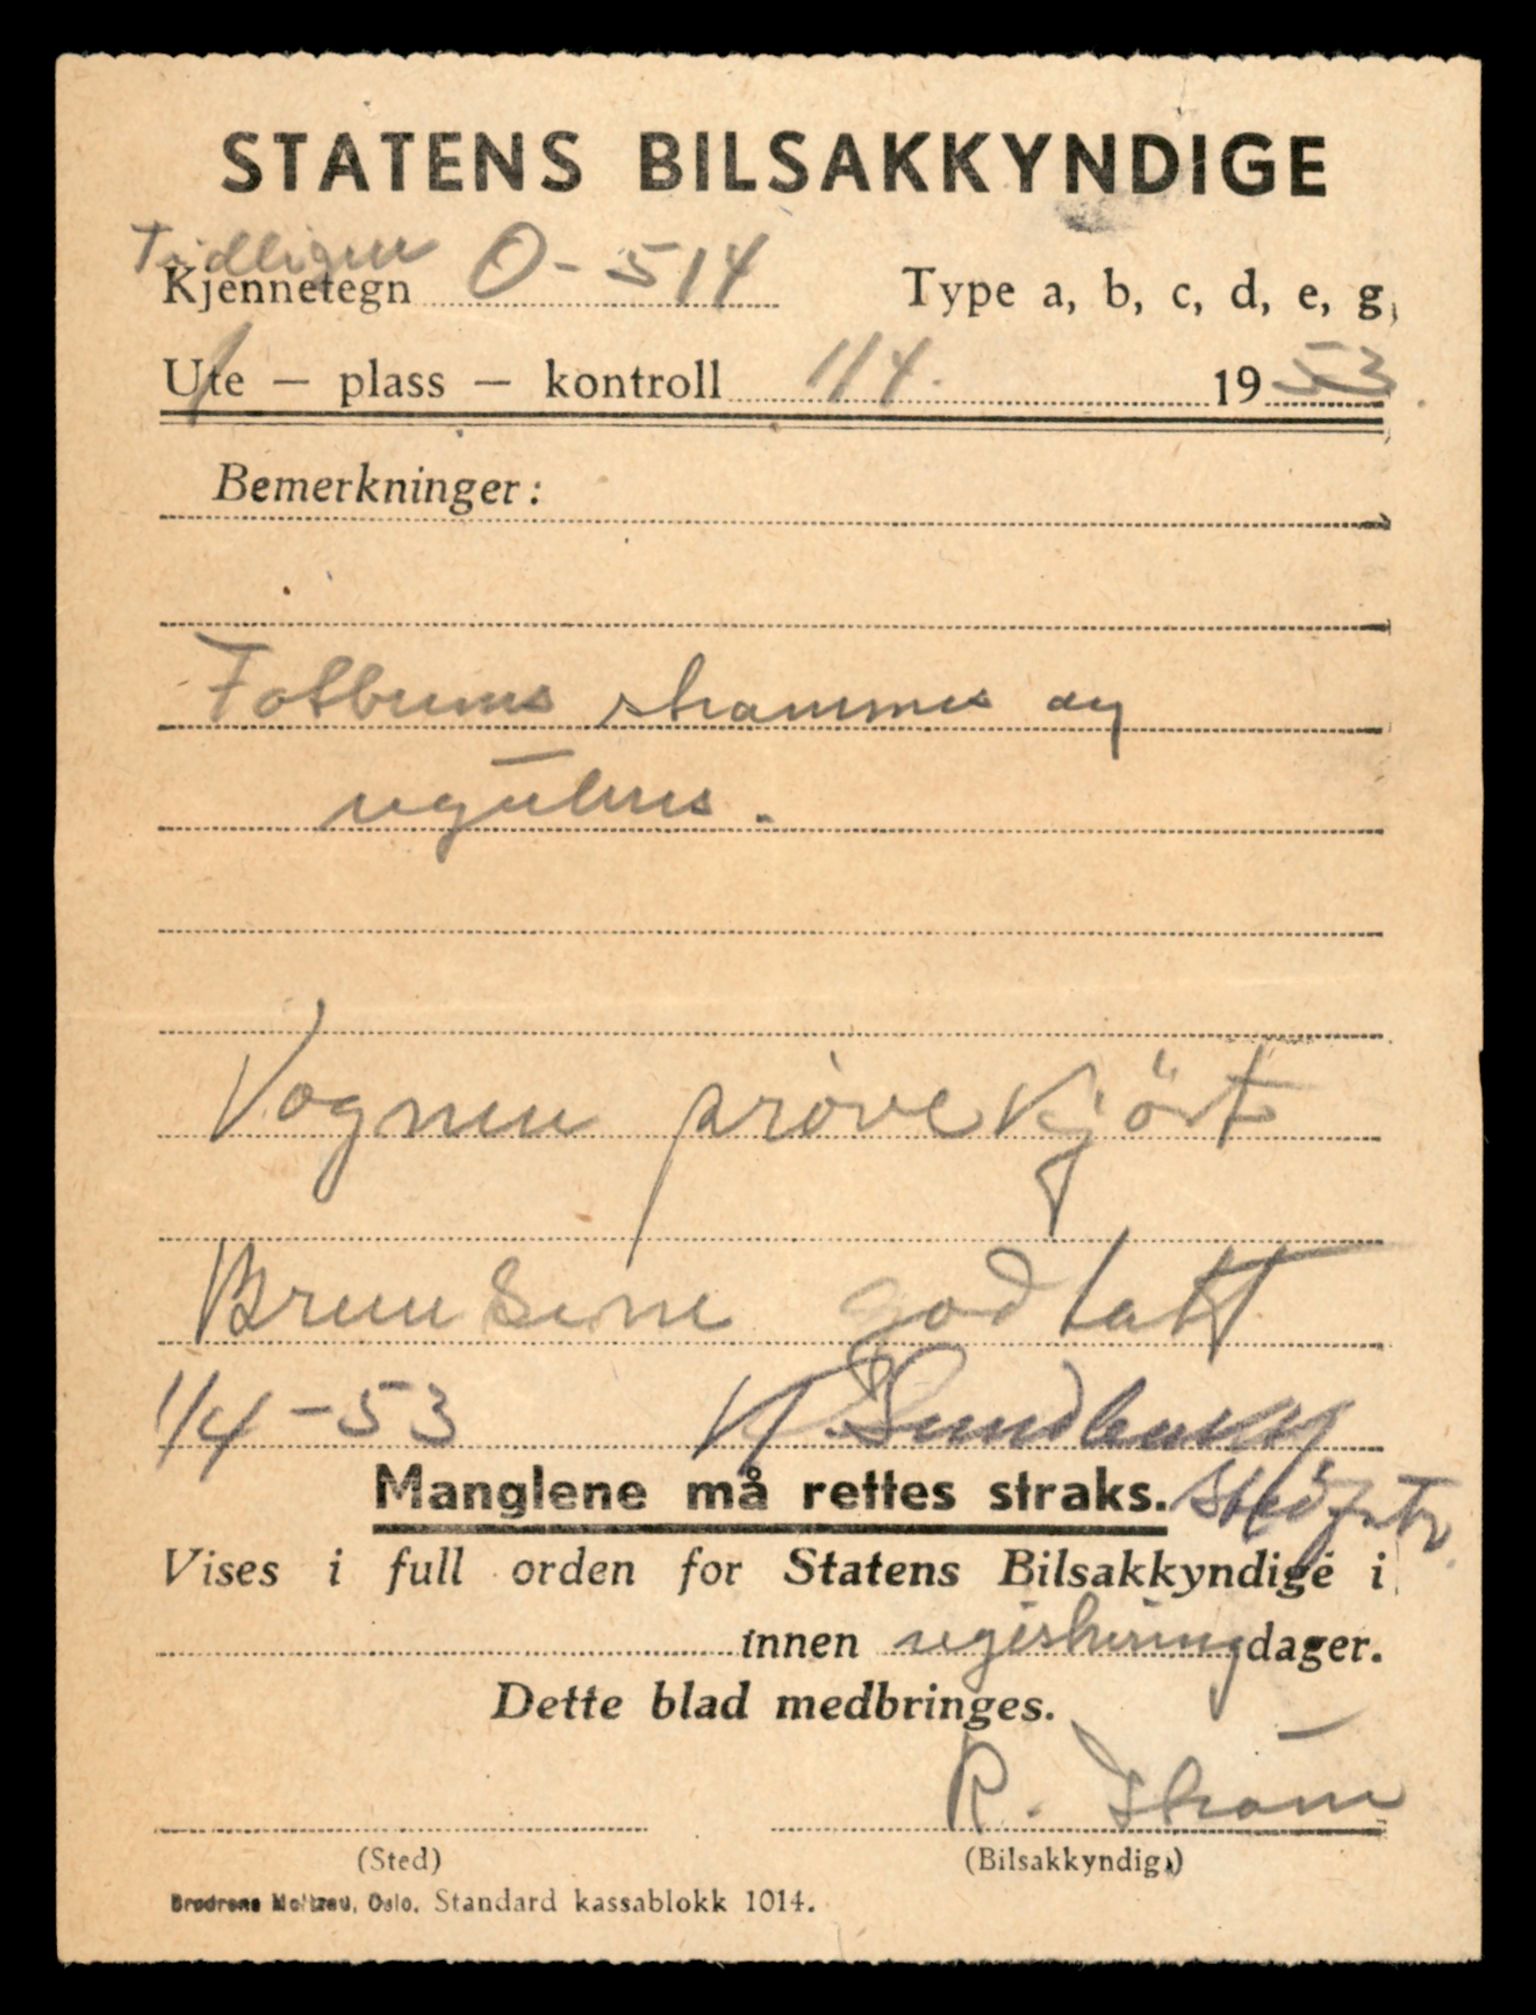 STATENS BILSAKKYNDIGE
Tidligere
Kjennetegn O-514 Type a, b, c, d, e, g,
Ute — plass — kontroll 1/4. 1953
Bemerkninger:
Fotbrems strammes og
reguleres.
Vognen prövekjört
Bremsene godtatt
1/4-53
Manglene må rettes straks.
Vises i full orden for Statens Bilsakkyndige i
innen registrering dager.
Dette blad medbringes.
R. Strøm
(Sted) (Bilsakkyndig.)
Brødrene Moltzau, Oslo. Standard kassablokk 1014.